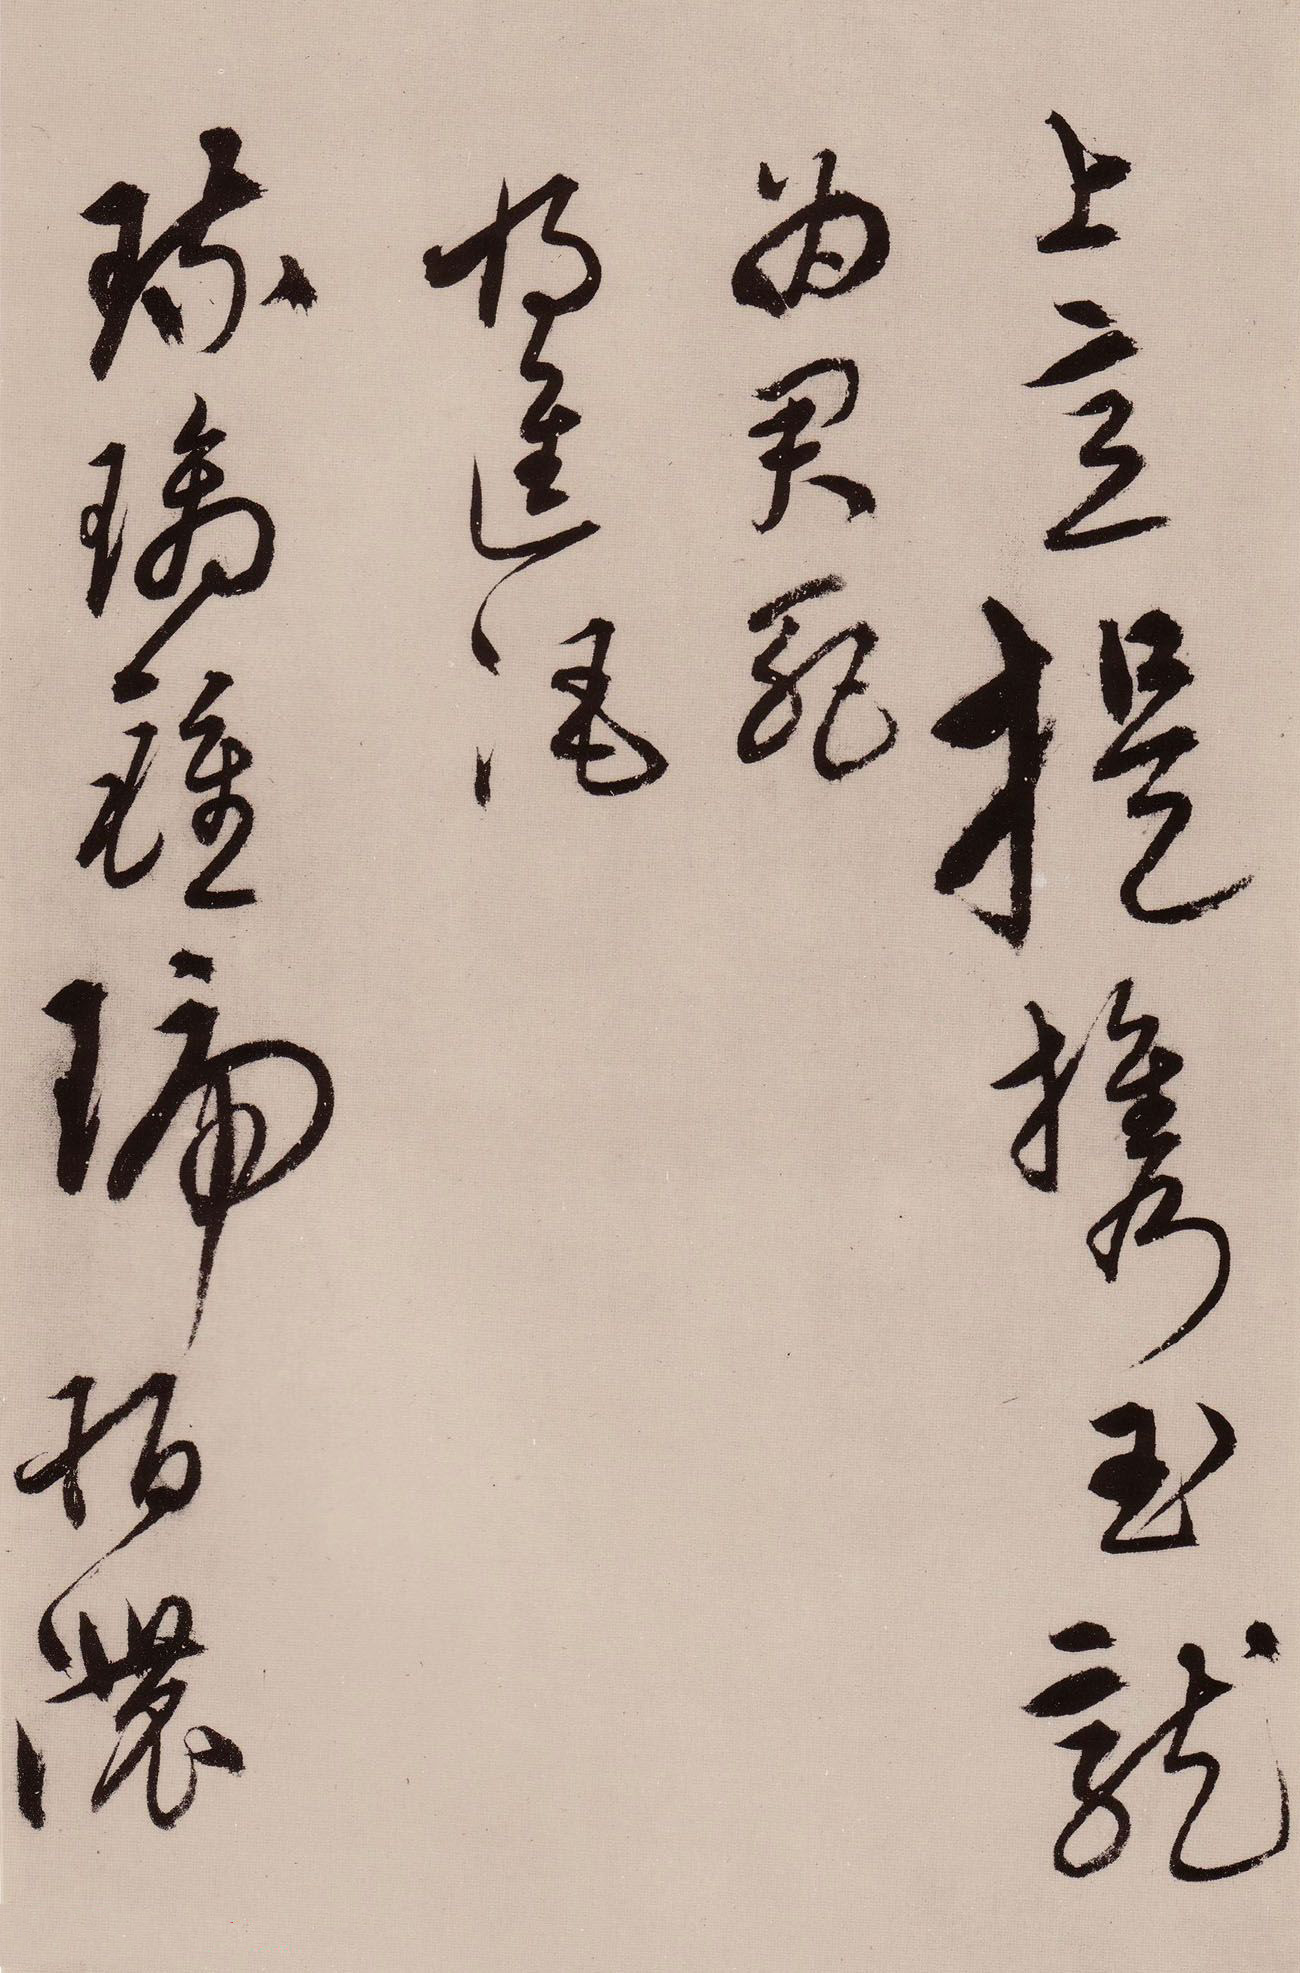 上意提攜玉龍
為君死
將進酒
琉璃鍾琥珀濃